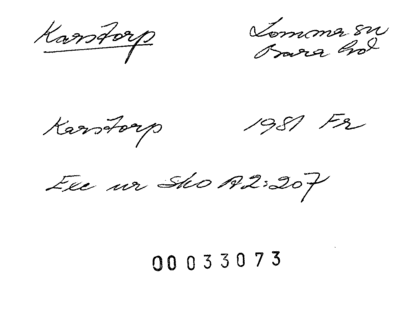 Karstorp Lomma sn
Bara hd
Karstorp 1981 Fr
Exc ur Sko A2:207
00033073